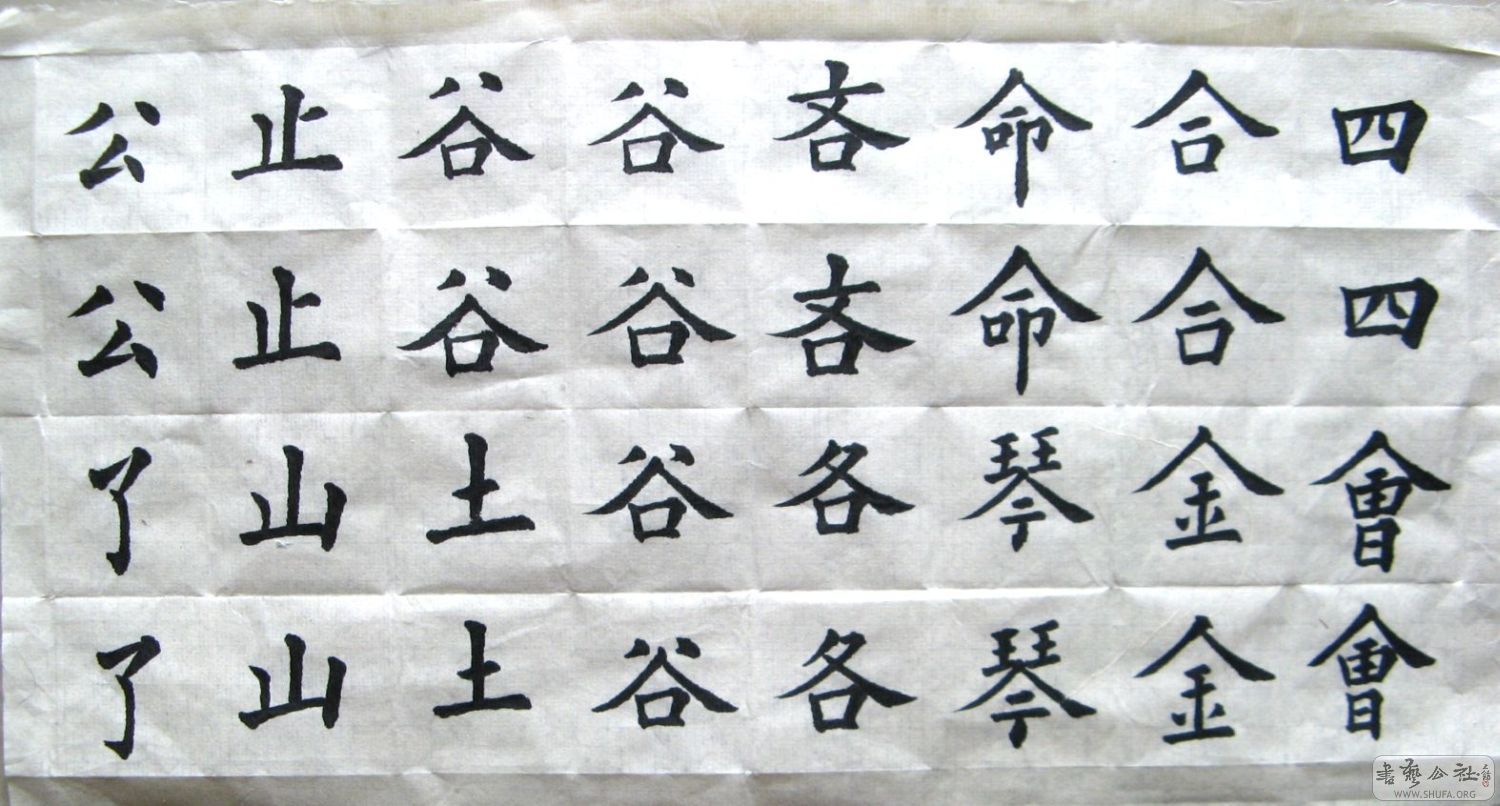 四四會會
合合金金
命命琴琴
吝吝各各
谷谷谷谷
谷谷土土
止止山山
公公了了
書藝公社
WWW.SHUFA.ORG